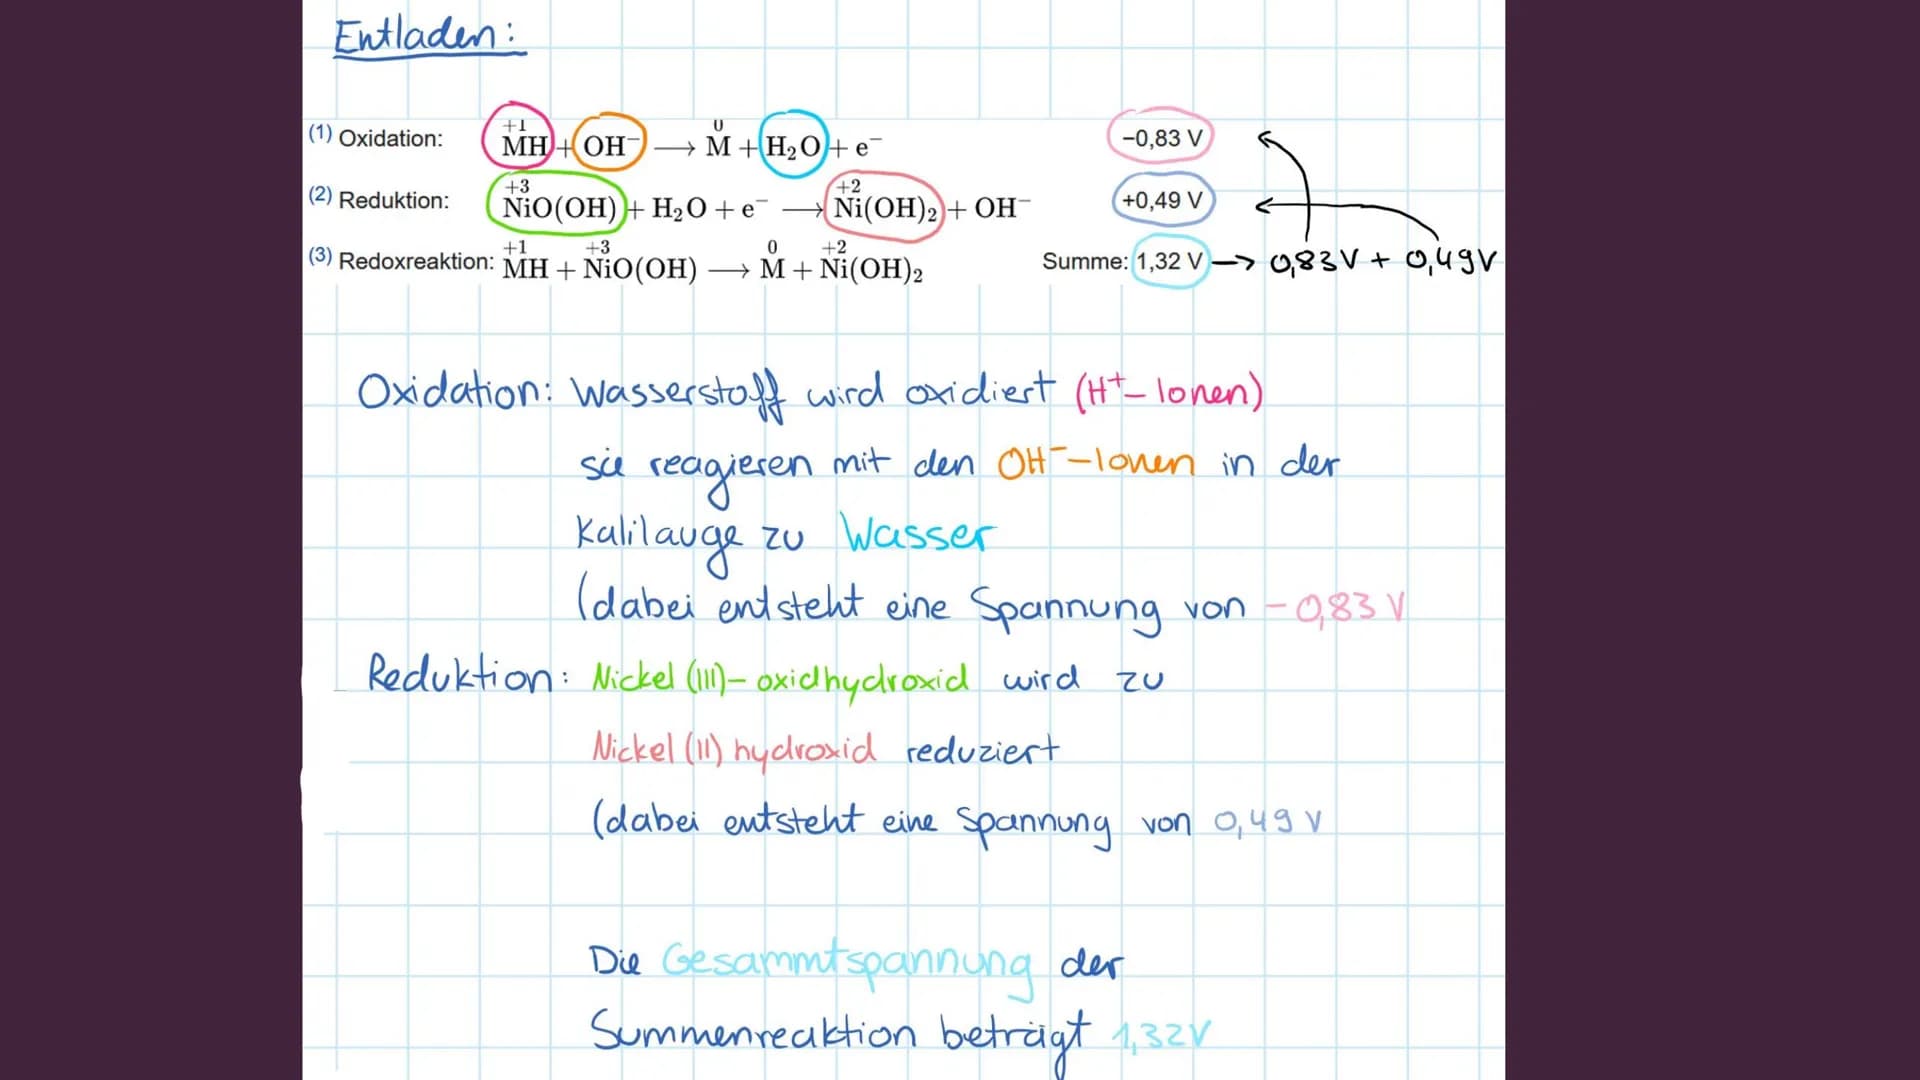 Entladen:
(1) Oxidation: +1 MH + OH⁻ ⟶ 0 M + H₂O + e⁻ −0,83 V
(2) Reduktion: +3 NiO(OH) + H₂O + e⁻ ⟶ +2 Ni(OH)₂ + OH⁻ +0,49 V
(3) Redoxreaktion: +1 MH + +3 NiO(OH) ⟶ 0 M + +2 Ni(OH)₂ Summe: 1,32 V → 0,83V + 0,49V
Oxidation: Wasserstoff wird oxidiert (H⁺-Ionen)
sie reagieren mit den OH⁻-Ionen in der
Kalilauge zu Wasser
(dabei entsteht eine Spannung von -0,83 V
Reduktion: Nickel (III)-oxidhydroxid wird zu
Nickel (II) hydroxid reduziert
(dabei entsteht eine Spannung von 0,49 V
Die Gesammtspannung der
Summenreaktion beträgt 1,32V